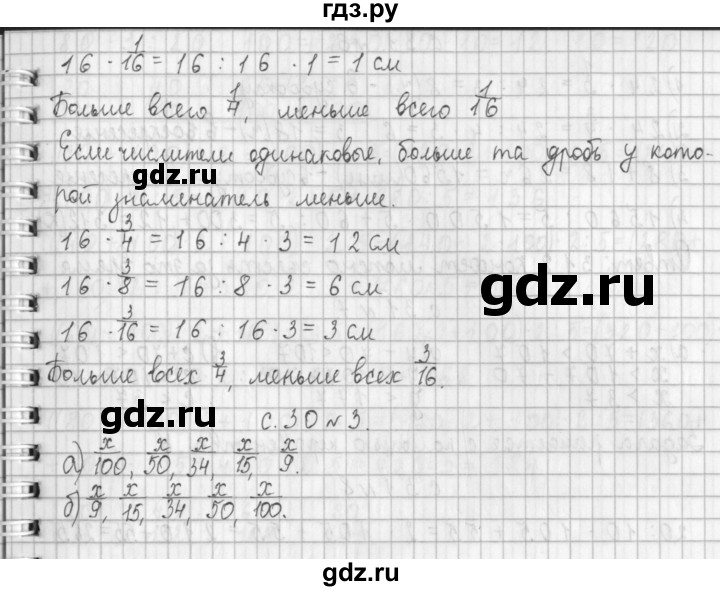 гдз.ру
16 · 1/16 = 16 : 16 · 1 = 1 см
Больше всего 1/4, меньше всего 1/16
Если числители одинаковые, больше та дробь у кото-
gdz.ru
рой знаменатель меньше.
16 · 3/4 = 16 : 4 · 3 = 12 см
gdz.ru
16 · 3/8 = 16 : 8 · 3 = 6 см
16 · 3/16 = 16 : 16 · 3 = 3 см
Больше всех 3/4, меньше всех 3/16.
gdz.ru
с. 30 № 3.
а) x/100, x/50, x/34, x/15, x/9.
б) x/9, x/15, x/34, x/50, x/100.
gdz.ru